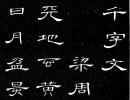 千字文
梁周
天地玄黃
日月盈昃